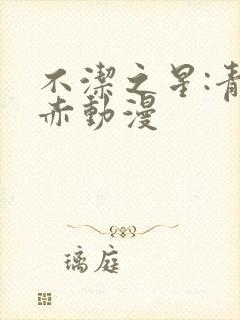 不潔之星:青
赤動漫
璃庭